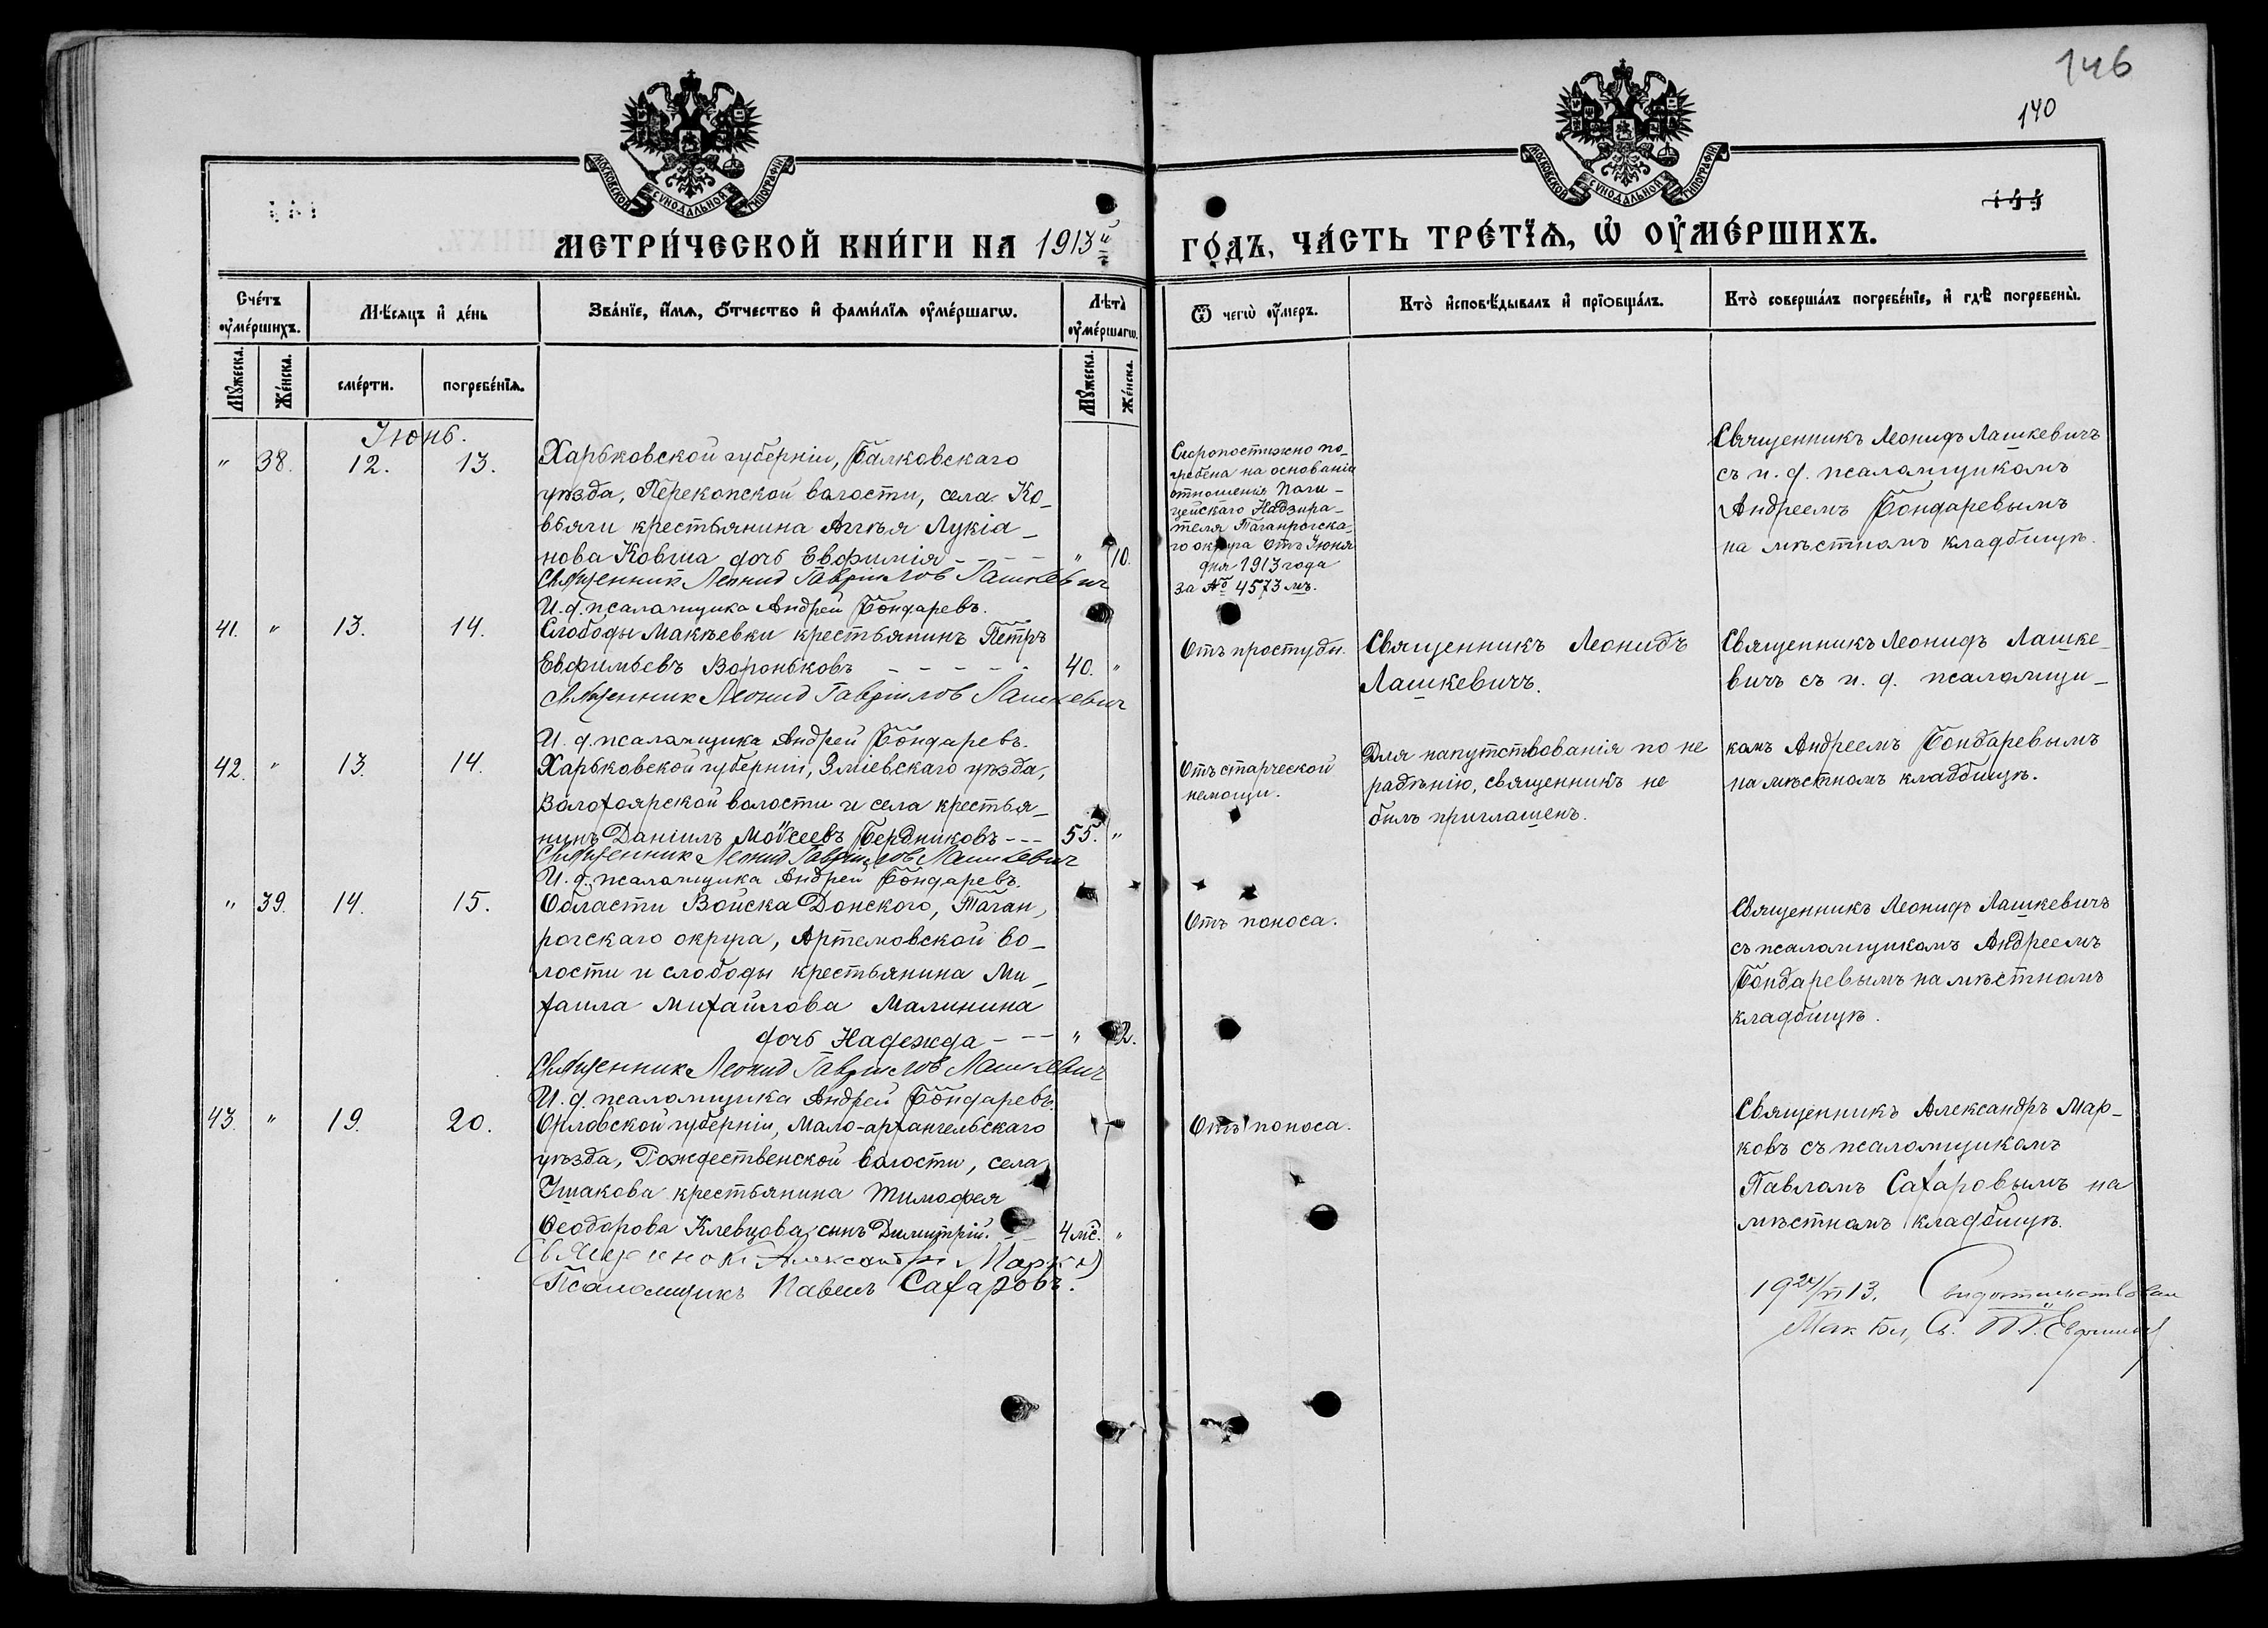 146
140
МОСКОВСКОЙ СѴНОДАЛЬНОЙ ТИПОГРАФІИ
МОСКОВСКОЙ СѴНОДАЛЬНОЙ ТИПОГРАФІИ
МЕТРИ́ЧЕСКОЙ КНИ́ГИ НА 1913й
ГО́ДЪ, ЧА́СТЬ ТРЕ́ТЇѦ, Ѡ҆ ОУ҆МЕ́РШИХЪ.
Сче́тъ оу҆ме́ршихъ.
Мѣ́сяцъ и҆ де́нь
Зва́нїе, и҆́мѧ, ѻ҆́тчество и҆ фами́лїѧ оу҆ме́ршагѡ.
Лѣ́та̀ оу҆ме́ршагѡ.
Ѿ чегѡ̀ оу҆́меръ.
Кто̀ и҆сповѣ́дывалъ и҆ прїѻбща́лъ.
Кто̀ соверша́лъ погребе́нїе, и҆ гдѣ̀ погребены̀.
Мꙋ́жеска.
Же́нска.
сме́рти.
погребе́нїѧ.
Мꙋ́жеска.
Же́нска.
Іюнь.
" 38. 12. 13.
Харьковской губерніи, Валковскаго
уѣзда, Перекопской волости, села Ко-
вьяги крестьянина Аггея Лукіа-
нова Ковша дочь Евфимія - - - - " 10.
Священник Леонид Гавріилов Лашкевич
И. д. псаломщика Андрей Бондаревъ.
Скоропостижно по-
гребена на основаніи
отношенія Поли-
цейскаго Надзира-
теля Таганрогска-
го округа отъ Іюня
дня 1913 года
за № 4573 мъ.
Священникъ Леонидъ Лашкевичъ
съ и. д. псаломщикомъ
Андреемъ Бондаревымъ
на мѣстномъ кладбищѣ.
41. " 13. 14.
Слободы Макѣевки крестьянинъ Петръ
Евфимьевъ Вороньковъ - - - - - 40. "
Священник Леонид Гавріилов Лашкевич
И. д. псаломщика Андрей Бондаревъ.
Отъ простуды.
Священникъ Леонидъ
Лашкевичъ.
Священникъ Леонидъ Лашке-
вичъ съ и. д. псаломщи-
42. " 13. 14.
Харьковской губерніи, Зміевскаго уѣзда,
Волохоярской волости и села крестья-
нинъ Даніилъ Моисеевъ Бердниковъ - - - 55. "
Священник Леонид Гавріилов Лашкевич
И. д. псаломщика Андрей Бондаревъ.
Отъ старческой
немощи.
Для напутствованія по не
радѣнію, священникъ не
былъ приглашенъ.
комъ Андреемъ Бондаревымъ
на мѣстномъ кладбищѣ.
" 39. 14. 15.
Области Войска Донского, Таган-
рогскаго округа, Артемовской во-
лости и слободы крестьянина Ми-
хаила Михайлова Малинина
дочь Надежда - - - " 2.
Священник Леонид Гавріилов Лашкевич
И. д. псаломщика Андрей Бондаревъ.
Отъ поноса.
Священникъ Леонидъ Лашкевичъ
съ псаломщикомъ Андреемъ
Бондаревымъ на мѣстномъ
кладбищѣ.
43. " 19. 20.
Орловской губерніи, Мало-архангельскаго
уѣзда, Рождественской волости, села
Ушакова крестьянина Тимофея
Ѳеодорова Клевцова, сынъ Димитрій. - - 4 мс. "
Священник Александр Марков
Псаломщикъ Павелъ Сахаровъ.
Отъ поноса.
Священникъ Александръ Мар-
ковъ съ псаломщикомъ
Павломъ Сахаровымъ на
мѣстномъ кладбищѣ.
19 /VI 13. Свидетельствовал
Мак. Бл, Св. Евфимьев